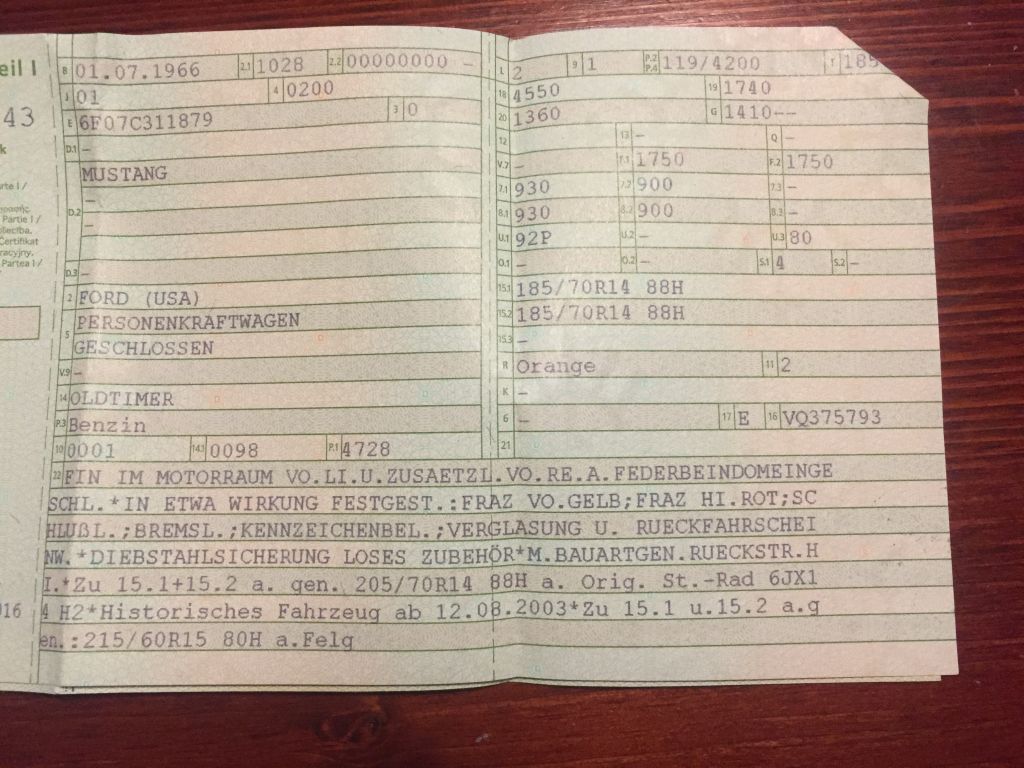 eil I
43
k
rte I /
Partie I /
oliecība,
Certifikat
racyjny,
Partea I /
16
B 01.07.1966 2.1 1028 2.2 00000000 -
J 01 4 0200
E 6F07C311879 3 0
D.1 -
MUSTANG
D.2 -
-
D.3 -
2 FORD (USA)
PERSONENKRAFTWAGEN
5 GESCHLOSSEN
V.9 -
14 OLDTIMER
P.3 Benzin
10 0001 14.1 0098 P.1 4728
L 2 9 1 P.2 P.4 119/4200 T 185
18 4550 19 1740
20 1360 G 1410--
12 - 13 - Q -
V.7 - F.1 1750 F.2 1750
7.1 930 7.2 900 7.3 -
8.1 930 8.2 900 8.3 -
U.1 92P U.2 - U.3 80
O.1 - O.2 - S.1 4 S.2 -
15.1 185/70R14 88H
15.2 185/70R14 88H
15.3 -
R Orange 11 2
K -
6 - 17 E 16 VQ375793
21
22 FIN IM MOTORRAUM VO.LI.U.ZUSAETZL.VO.RE.A.FEDERBEINDOMEINGE
SCHL.*IN ETWA WIRKUNG FESTGEST.:FRAZ VO.GELB;FRAZ HI.ROT;SC
HLUßL.;BREMSL.;KENNZEICHENBEL.;VERGLASUNG U. RUECKFAHRSCHEI
NW.*DIEBSTAHLSICHERUNG LOSES ZUBEHÖR*M.BAUARTGEN.RUECKSTR.H
I.*Zu 15.1+15.2 a. gen. 205/70R14 88H a. Orig. St.-Rad 6JX1
4 H2*Historisches Fahrzeug ab 12.08.2003*Zu 15.1 u.15.2 a.g
en.:215/60R15 80H a.Felg